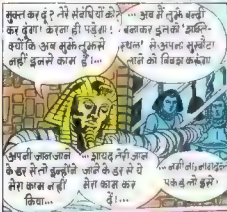 मुक्त कर दूं? तेरे संबंधियों को?
कर दूंगा! करना ही पड़ेगा!
क्योंकि अब मुझे तुझसे
नहीं इनसे काम है!...
... अब मैं तुझे बन्दी
बनाकर इनकी 'शक्ति-
स्थल' से अपना मुखौटा
लाने को विवश करूंगा!
अपनी जान जाने
के डर से तो इन्होंने
मेरा काम नहीं
किया...
... शायद तेरी जान
जाने के डर से ये
मेरा काम कर
दें!...
पकड़ लो इसे!